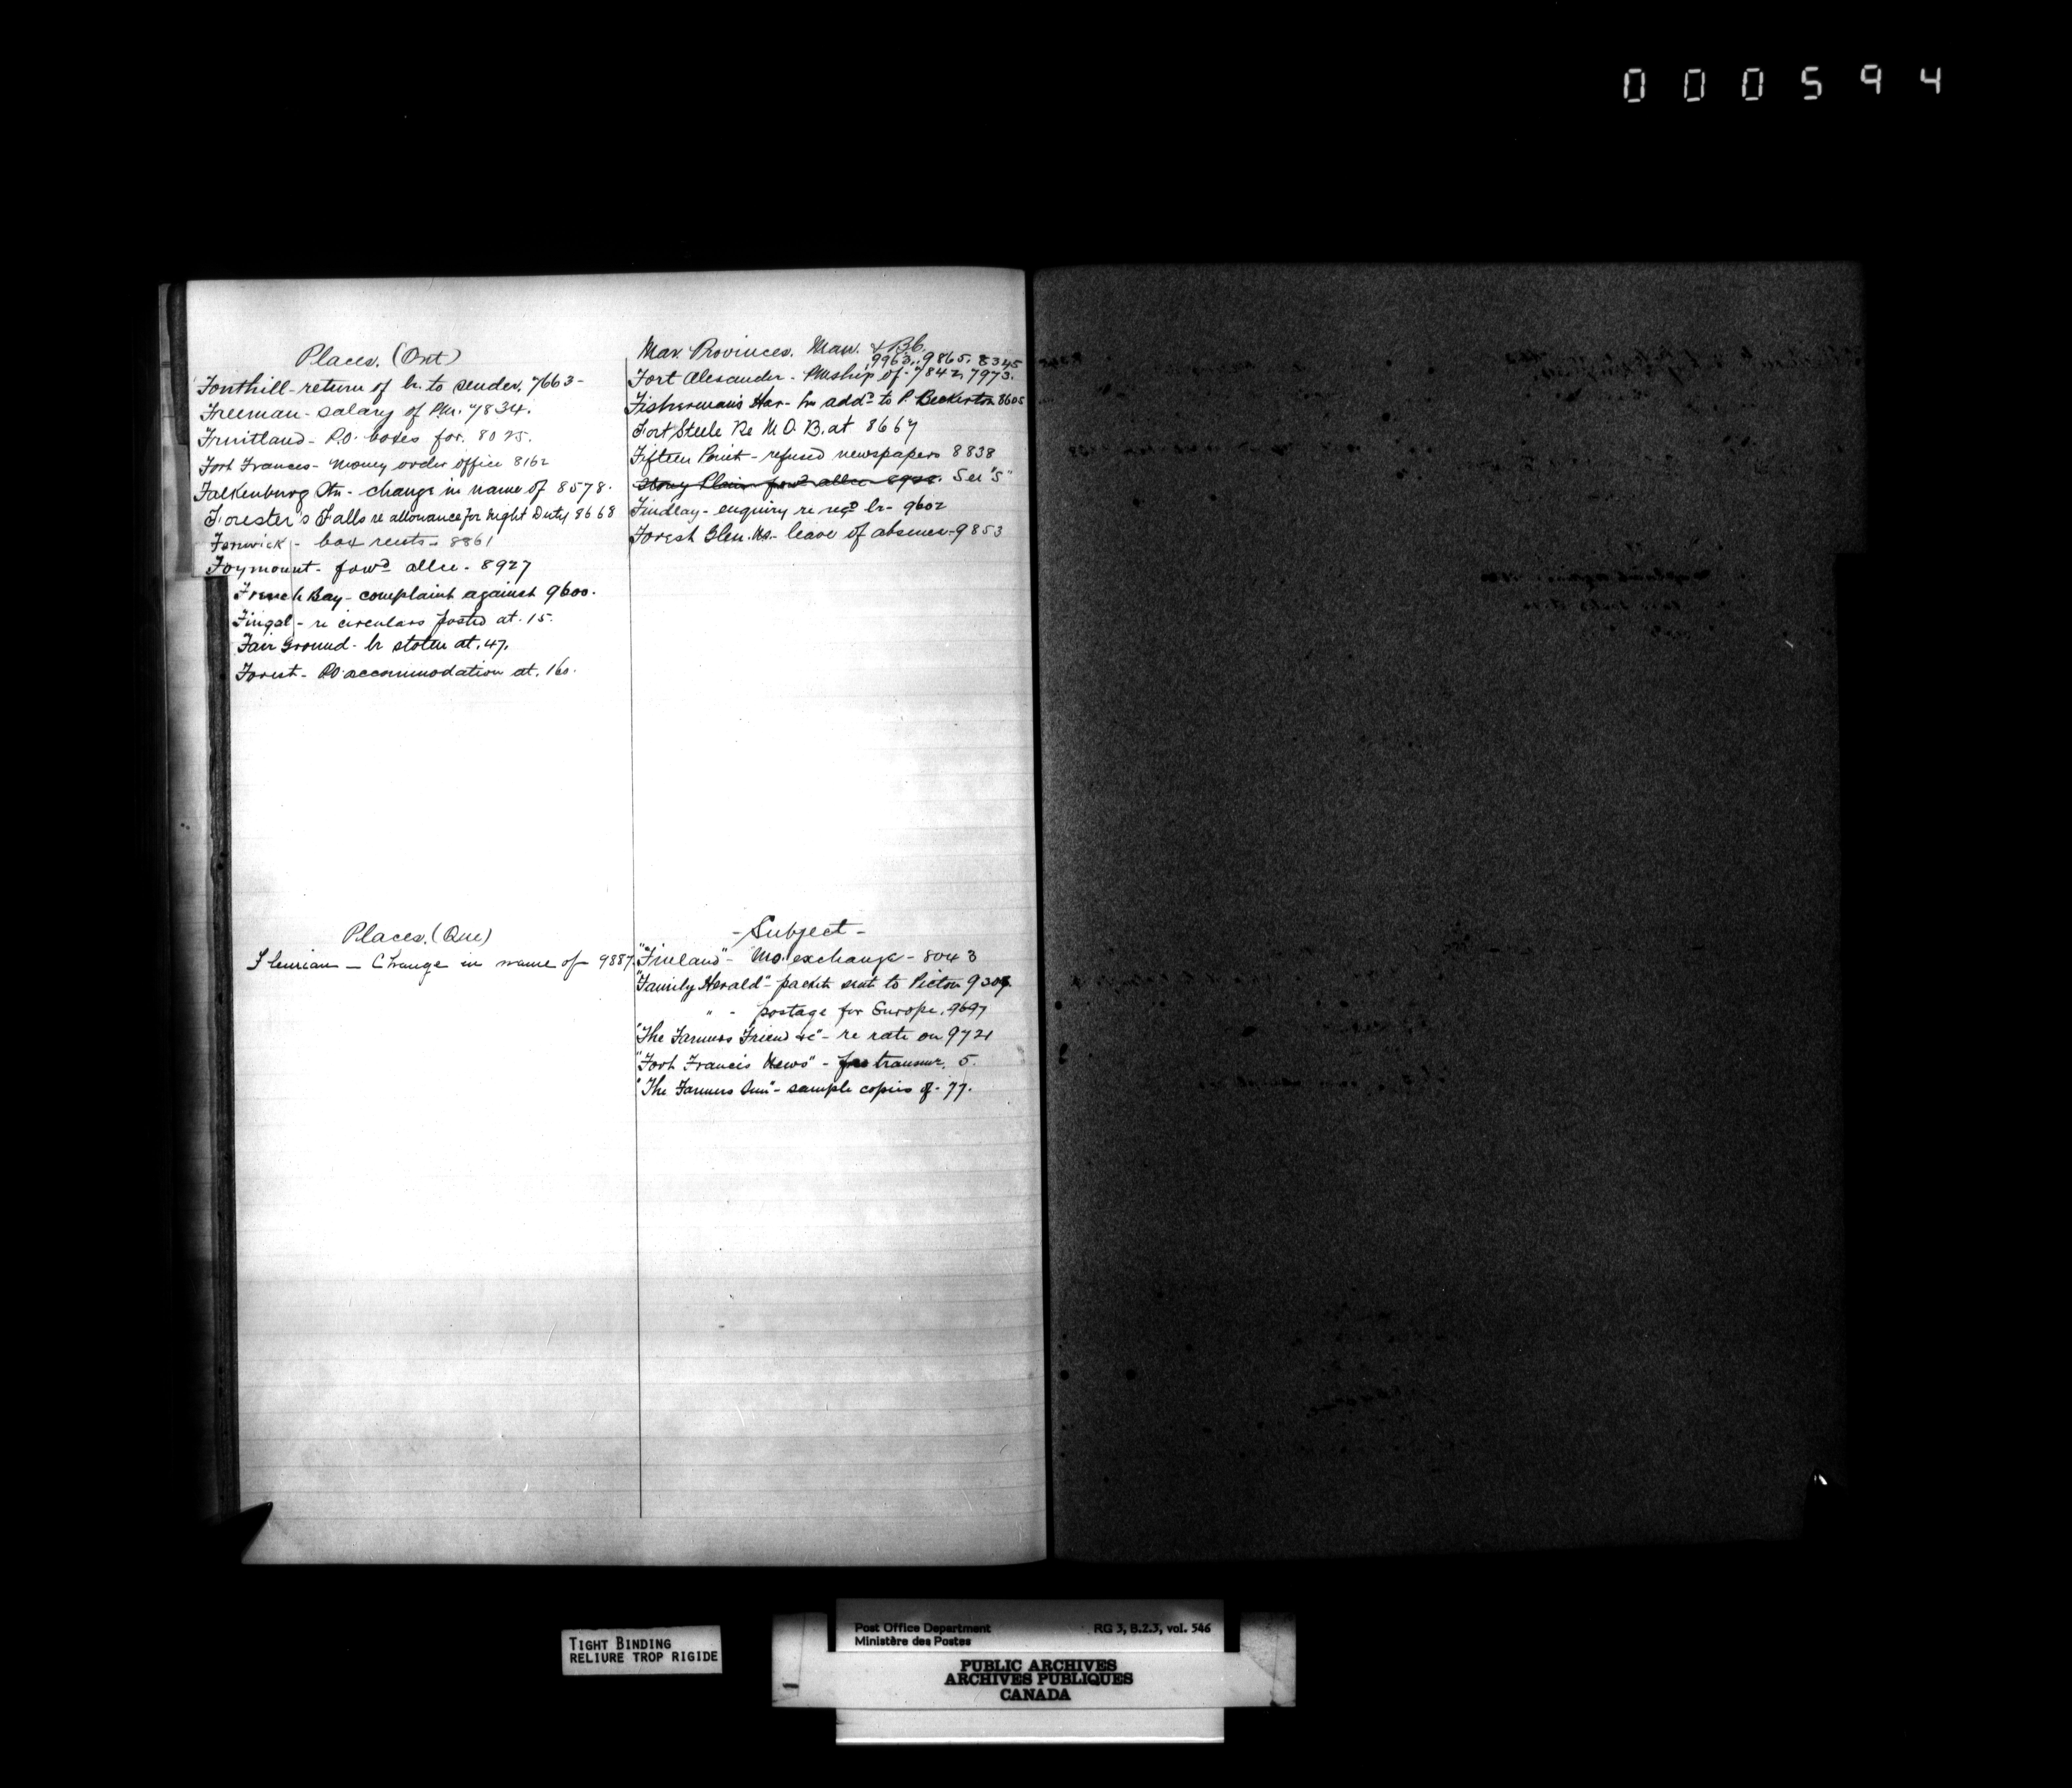 000594
Places. (Ont)
Fonthill - return of lr. to sender. 7663 -
Freeman - salary of P.M. 7834.
Fruitland - P.O. boxes for. 8025.
Fort Frances - Money order office 8162
Falkenburg Stn. - change in name of 8578.
Forester's Falls re allowance for Night Duty 8668
Fenwick - box rents - 8861
Foymount - forwd allce - 8927
French Bay - complaint against 9600.
Fingal - re circulars posted at. 15.
Fair Ground - lr stolen at. 47.
Forest - P.O. accommodation at. 160.
Mar. Provinces. Man. & B.C.
9963. 9865. 8345
Fort Alexander - PMship of - 7842, 7973.
Fisherman's Har - lr addd to P. Beckerton 8605
Fort Steele Re M.O.B. at 8667
Fifteen Point - refused newspapers 8838
Stony Plain forwd allce 8928. See "S"
Findlay - enquiry re regd lr - 9602
Forest Glen. N.S. - leave of absence - 9853
Places. (Que)
Fleurian - Change in name of - 9887
- Subject -
"Finland" - M.O. exchange - 8043
"Family Herald" - packet sent to Picton
" - postage for Europe. 9697
"The Farmers Friend &c" - re rate on 9721
"Fort Francis News" - free transmn. 5.
"The Farmers Sun" - sample copies of - 77.
TIGHT BINDING
RELIURE TROP RIGIDE
Post Office Department RG 3, B.2.3, vol. 546
Ministère des Postes
PUBLIC ARCHIVES
ARCHIVES PUBLIQUES
CANADA